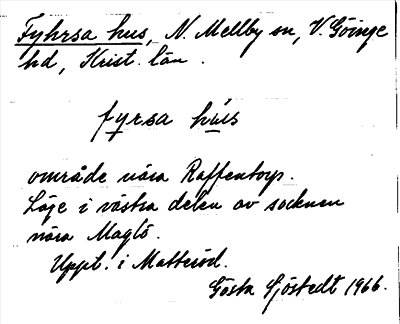 Fyhrsa hus, N. Mellby sn, V. Göinge
hd, Krist. län.
fyrsa hús
område nära Raffentorp.
Läge i västra delen av socknen
nära Maglö.
Uppt. i Matteröd.
Gösta Sjöstedt 1966.